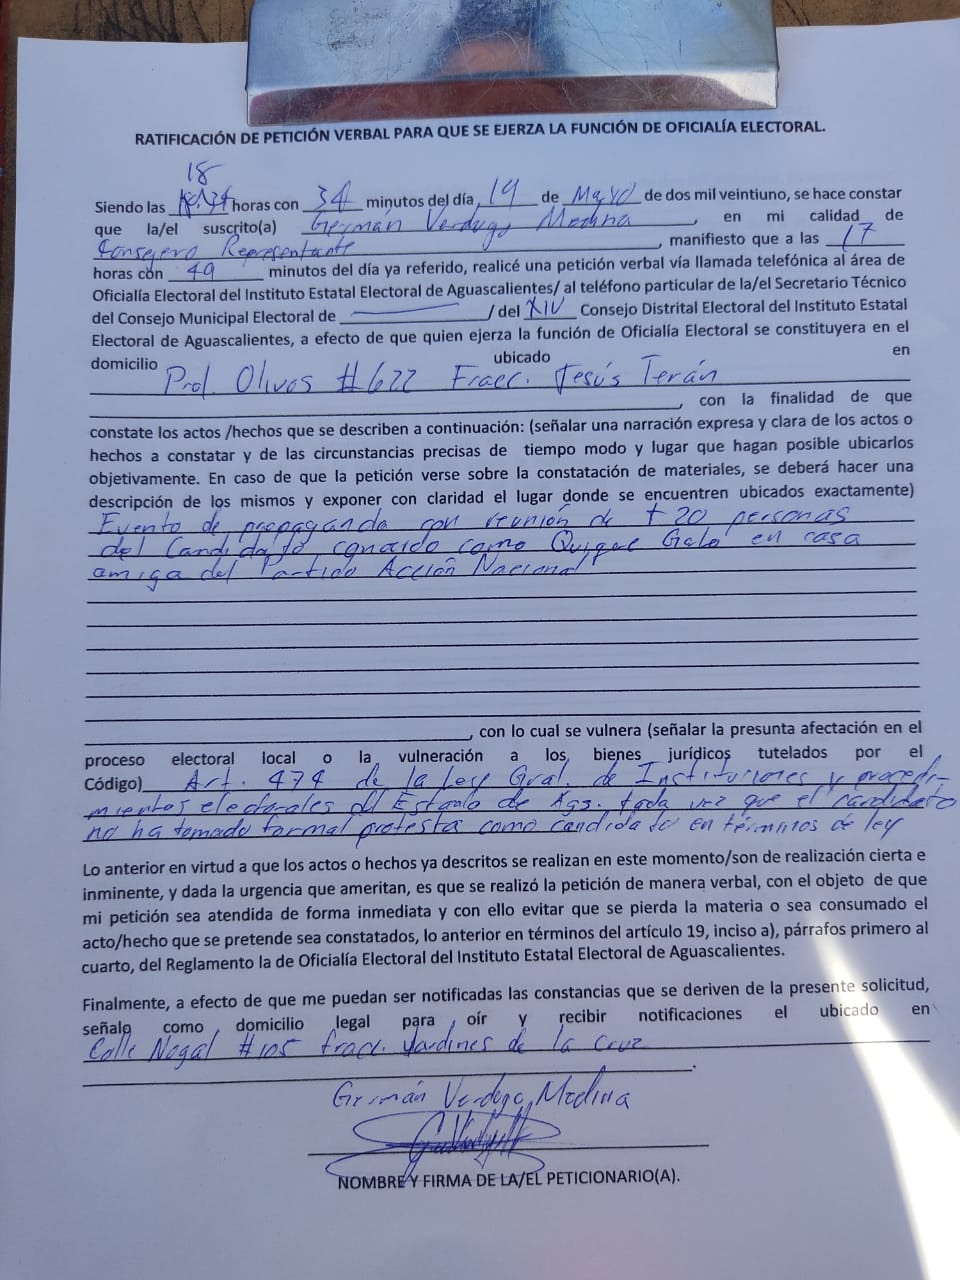 RATIFICACIÓN DE PETICIÓN VERBAL PARA QUE SE EJERZA LA FUNCIÓN DE OFICIALÍA ELECTORAL.
18
Siendo las horas con 34 minutos del día, 19 de Mayo de dos mil veintiuno, se hace constar
que la/el suscrito(a) Germán Verdugo Medina, en mi calidad de
Consejero Representante, manifiesto que a las 17
horas con 49 minutos del día ya referido, realicé una petición verbal vía llamada telefónica al área de
Oficialía Electoral del Instituto Estatal Electoral de Aguascalientes/ al teléfono particular de la/el Secretario Técnico
del Consejo Municipal Electoral de ———— / del XIV Consejo Distrital Electoral del Instituto Estatal
Electoral de Aguascalientes, a efecto de que quien ejerza la función de Oficialía Electoral se constituyera en el
domicilio ubicado en
Prof. Olivos #622 Fracc. Jesús Terán
, con la finalidad de que
constate los actos /hechos que se describen a continuación: (señalar una narración expresa y clara de los actos o
hechos a constatar y de las circunstancias precisas de tiempo modo y lugar que hagan posible ubicarlos
objetivamente. En caso de que la petición verse sobre la constatación de materiales, se deberá hacer una
descripción de los mismos y exponer con claridad el lugar donde se encuentren ubicados exactamente)
Evento de propaganda con reunión de + 20 personas
del Candidato conocido como "Quique Galo" en casa
amiga del Partido Acción Nacional
, con lo cual se vulnera (señalar la presunta afectación en el
proceso electoral local o la vulneración a los bienes jurídicos tutelados por el
Código) Art. 474 de la Ley Gral. de Instituciones y procedi-
mientos electorales del Estado de Ags. toda vez que el candidato
no ha tomado formal protesta como candidato en términos de ley
Lo anterior en virtud a que los actos o hechos ya descritos se realizan en este momento/son de realización cierta e
inminente, y dada la urgencia que ameritan, es que se realizó la petición de manera verbal, con el objeto de que
mi petición sea atendida de forma inmediata y con ello evitar que se pierda la materia o sea consumado el
acto/hecho que se pretende sea constatados, lo anterior en términos del artículo 19, inciso a), párrafos primero al
cuarto, del Reglamento la de Oficialía Electoral del Instituto Estatal Electoral de Aguascalientes.
Finalmente, a efecto de que me puedan ser notificadas las constancias que se deriven de la presente solicitud,
señalo como domicilio legal para oír y recibir notificaciones el ubicado en
Calle Nogal #105 fracc. Jardines de la Cruz
Germán Verdugo Medina
NOMBRE Y FIRMA DE LA/EL PETICIONARIO(A).